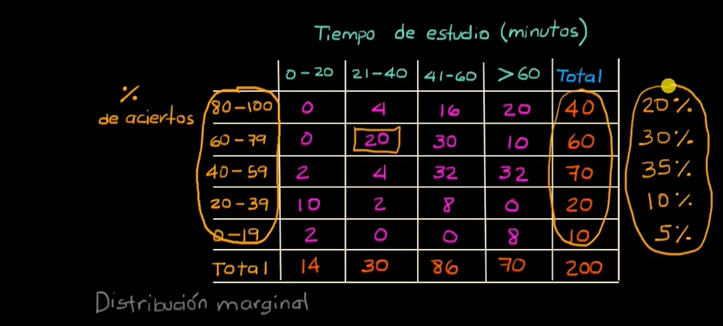 Tiempo de estudio (minutos)
0-20 21-40 41-60 >60 Total
%
de aciertos
80-100 0 4 16 20 40 20%
60-79 0 20 30 10 60 30%
40-59 2 4 32 32 70 35%
20-39 10 2 8 0 20 10%
0-19 2 0 0 8 10 5%
Total 14 30 86 70 200
Distribución marginal